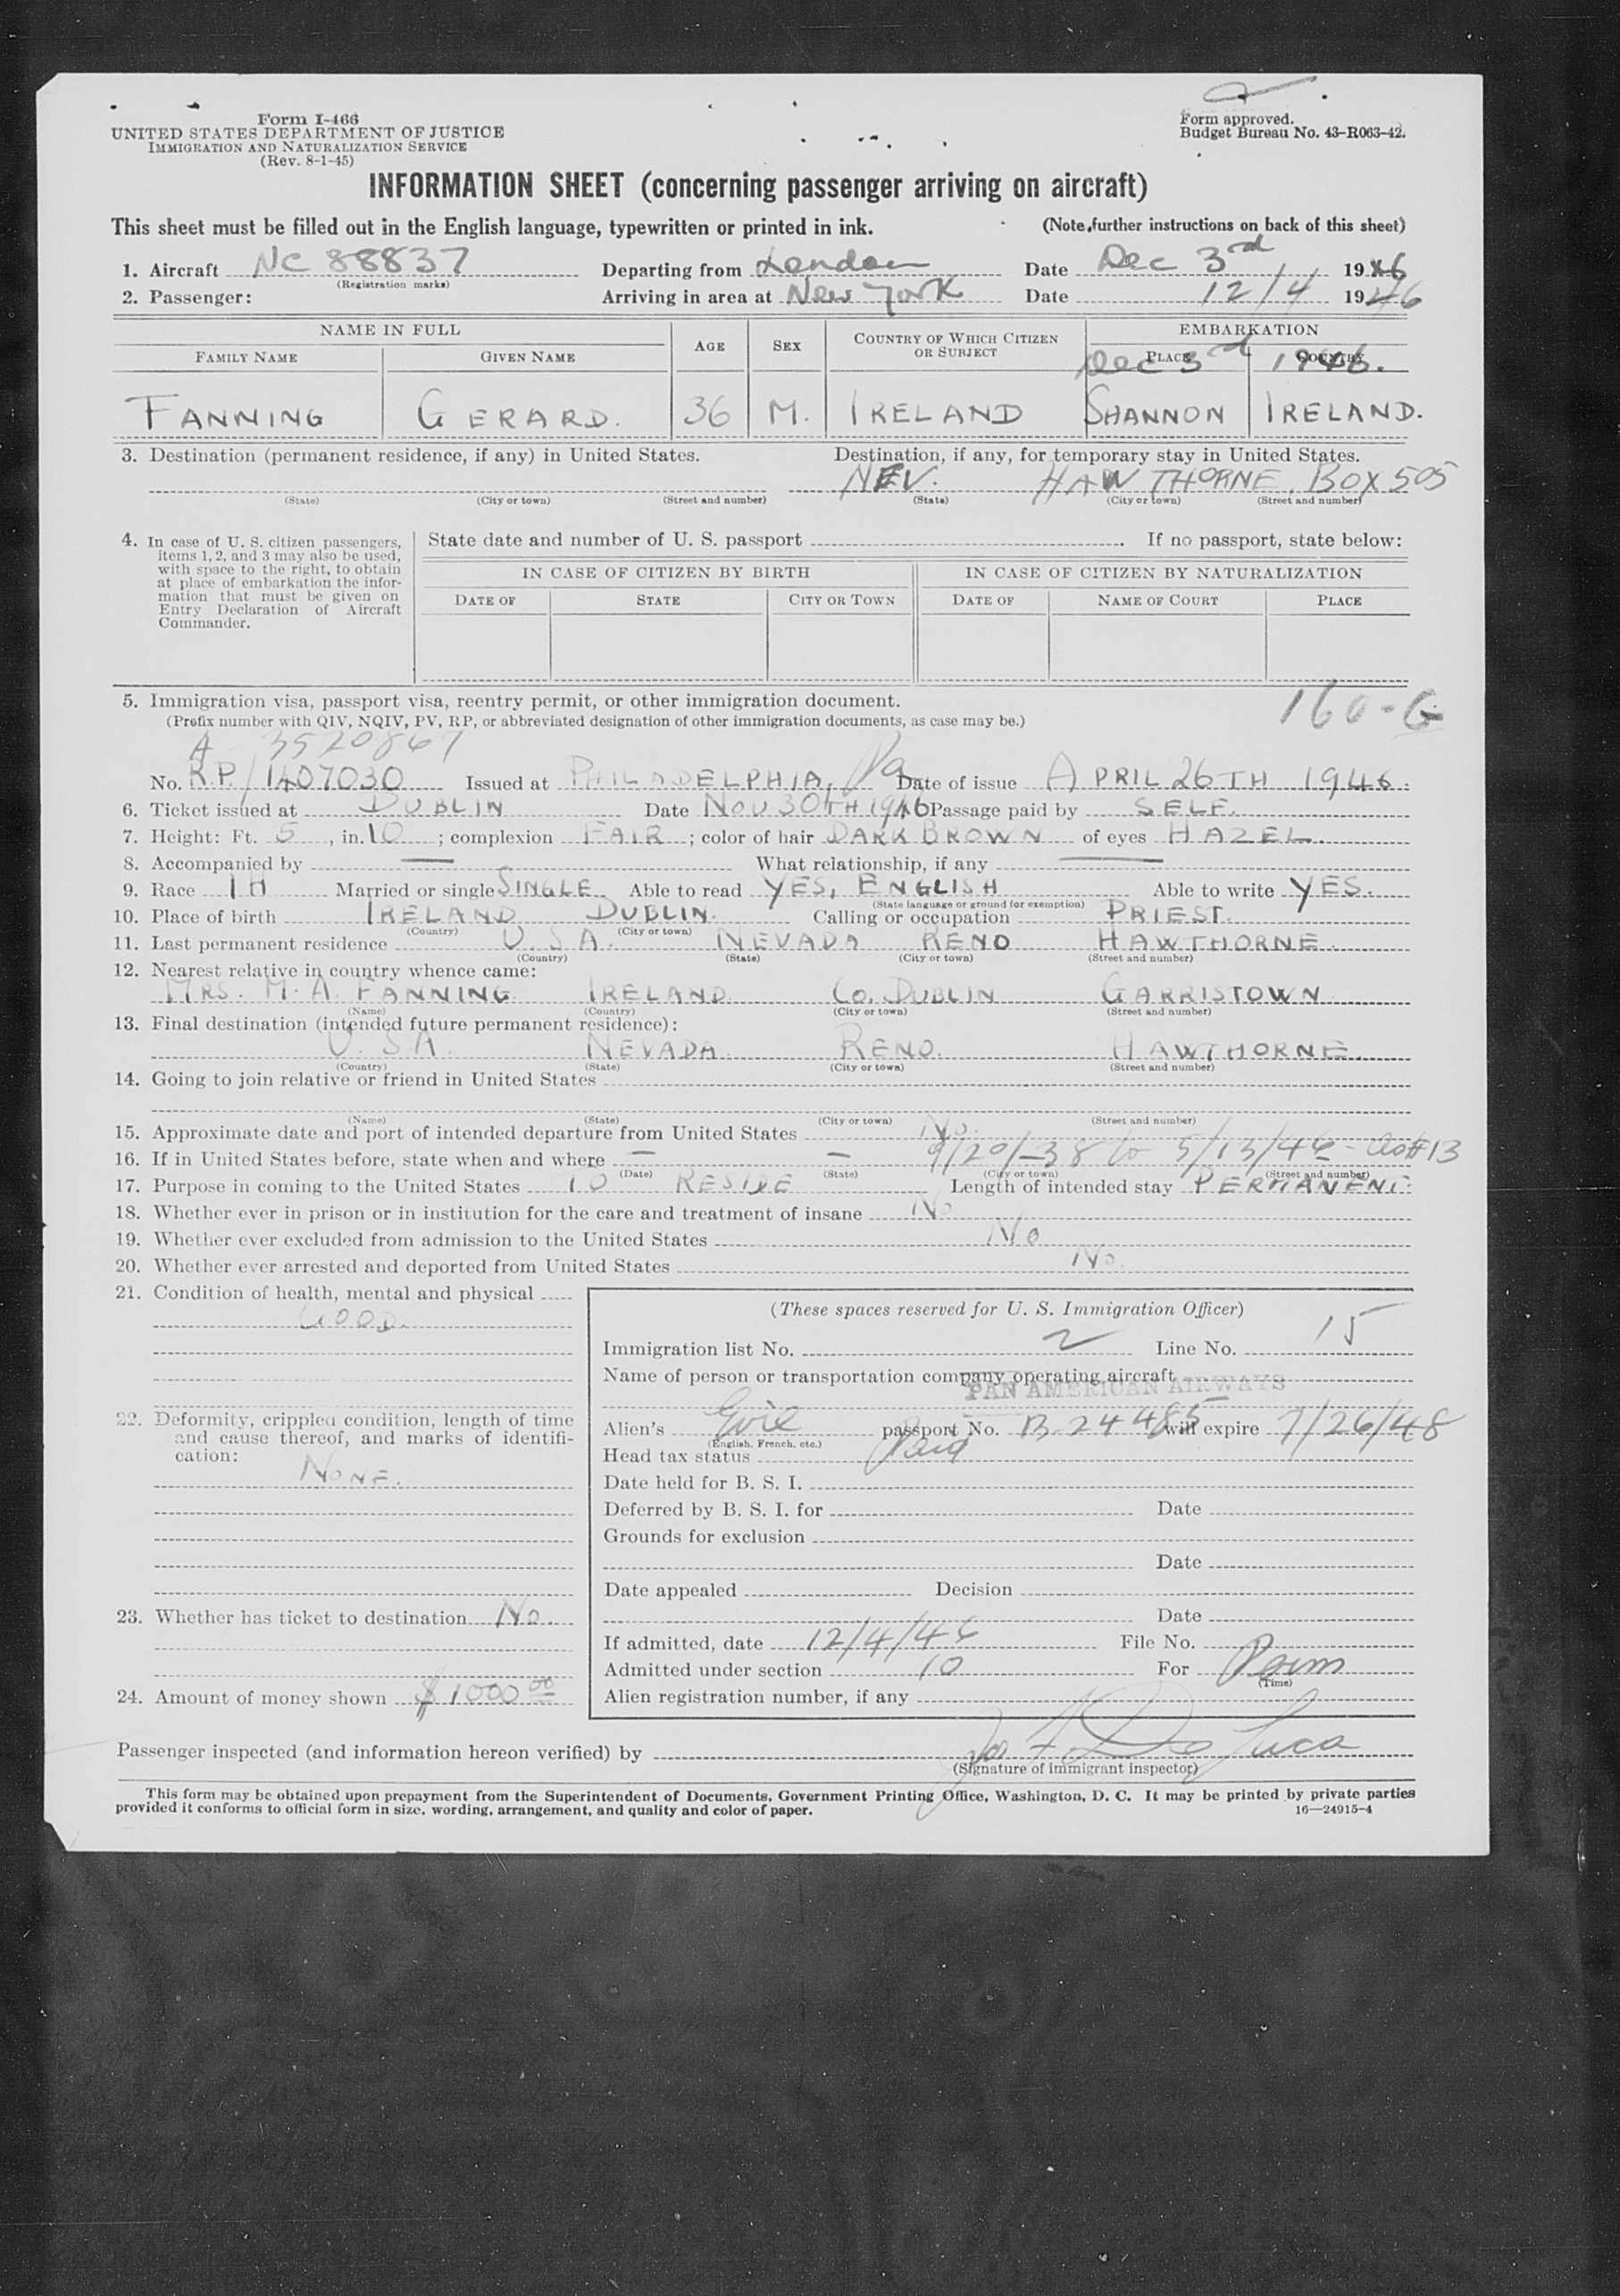 Form I-466
UNITED STATES DEPARTMENT OF JUSTICE
IMMIGRATION AND NATURALIZATION SERVICE
(Rev. 8-1-45)
Form approved.
Budget Bureau No. 43-R063-42.
INFORMATION SHEET (concerning passenger arriving on aircraft)
This sheet must be filled out in the English language, typewritten or printed in ink. (Note further instructions on back of this sheet)
1. Aircraft NC 88837 Departing from London Date Dec 3rd 1946
(Registration marks)
2. Passenger: Arriving in area at New York Date 12/4 1946
NAME IN FULL AGE SEX COUNTRY OF WHICH CITIZEN OR SUBJECT EMBARKATION
FAMILY NAME GIVEN NAME PLACE COUNTRY
Dec 3rd 1946.
FANNING GERARD. 36 M. IRELAND SHANNON IRELAND.
3. Destination (permanent residence, if any) in United States. Destination, if any, for temporary stay in United States.
NEV. HAWTHORNE. BOX 505
(State) (City or town) (Street and number) (State) (City or town) (Street and number)
4. In case of U. S. citizen passengers, items 1, 2, and 3 may also be used, with space to the right, to obtain at place of embarkation the information that must be given on Entry Declaration of Aircraft Commander.
State date and number of U. S. passport . If no passport, state below:
IN CASE OF CITIZEN BY BIRTH IN CASE OF CITIZEN BY NATURALIZATION
DATE OF STATE CITY OR TOWN DATE OF NAME OF COURT PLACE
5. Immigration visa, passport visa, reentry permit, or other immigration document. 160-G
(Prefix number with QIV, NQIV, PV, RP, or abbreviated designation of other immigration documents, as case may be.)
A 3520867
No. R.P./1407030 Issued at PHILADELPHIA, Pa Date of issue APRIL 26TH 1946.
6. Ticket issued at DUBLIN Date NOV 30TH 1946 Passage paid by SELF.
7. Height: Ft. 5, in. 10; complexion FAIR; color of hair DARK BROWN of eyes HAZEL.
8. Accompanied by — What relationship, if any —
9. Race IH Married or single SINGLE Able to read YES, ENGLISH Able to write YES.
(State language or ground for exemption)
10. Place of birth IRELAND DUBLIN. Calling or occupation PRIEST.
(Country) (City or town)
11. Last permanent residence U.S.A. NEVADA RENO HAWTHORNE
(Country) (State) (City or town) (Street and number)
12. Nearest relative in country whence came:
MRS. M. A. FANNING IRELAND CO. DUBLIN GARRISTOWN
(Name) (Country) (City or town) (Street and number)
13. Final destination (intended future permanent residence):
U.S.A. NEVADA RENO. HAWTHORNE.
(Country) (State) (City or town) (Street and number)
14. Going to join relative or friend in United States
(Name) (State) (City or town) (Street and number)
15. Approximate date and port of intended departure from United States No.
16. If in United States before, state when and where — — 9/20/38 to 5/13/46 -
(Date) (State) (City or town) (Street and number)
17. Purpose in coming to the United States TO RESIDE Length of intended stay PERMANENT.
18. Whether ever in prison or in institution for the care and treatment of insane No
19. Whether ever excluded from admission to the United States No
20. Whether ever arrested and deported from United States No.
21. Condition of health, mental and physical
GOOD.
22. Deformity, crippled condition, length of time and cause thereof, and marks of identification:
NONE.
23. Whether has ticket to destination No.
24. Amount of money shown $1000 00
(These spaces reserved for U. S. Immigration Officer)
Immigration list No. 2 Line No. 15
Name of person or transportation company operating aircraft
PAN AMERICAN AIRWAYS
Alien's Eire passport No. B 24485 will expire 7/26/48
(English, French, etc.)
Head tax status Paid
Date held for B. S. I.
Deferred by B. S. I. for Date
Grounds for exclusion
Date
Date appealed Decision
Date
If admitted, date 12/4/46 File No.
Admitted under section 10 For Perm
(Time)
Alien registration number, if any
Passenger inspected (and information hereon verified) by Jos F De Luca
(Signature of immigrant inspector)
This form may be obtained upon prepayment from the Superintendent of Documents, Government Printing Office, Washington, D. C. It may be printed by private parties
provided it conforms to official form in size, wording, arrangement, and quality and color of paper. 16—24915-4